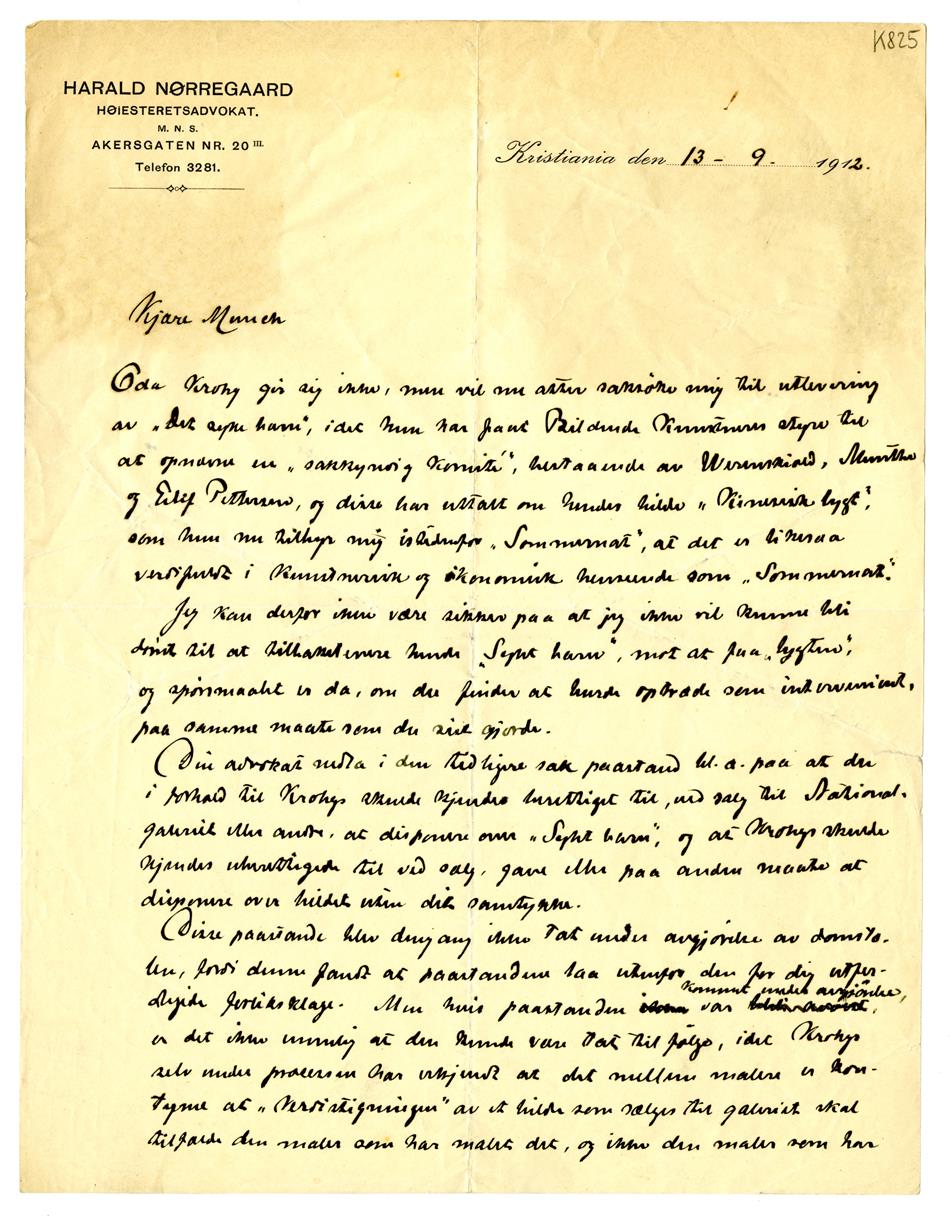 K825
HARALD NØRREGAARD
HØIESTERETSADVOKAT.
M. N. S.
AKERSGATEN NR. 20 III.
Telefon 3281.
Kristiania den 13 – 9. 1912.
Kjære Munch
Oda Krohg gir sig ikke, men vil nu atter saksöke mig til utlevering
av „Det syke barn", idet hun har faat Bildende Kunstneres styre til
at opnævne en „sakkyndig komité", bestaaende av Werenskiold, Munthe
og Eilif Pettersen, og disse har uttalt om hendes bilde „Kinesisk lygt",
som hun nu tilbyr mig istedenfor „Sommernat", at det er likesaa
verdifuldt i kunstnerisk og ökonomisk henseende som „Sommernat".
Jeg kan derfor ikke være sikker paa at jeg ikke vil kunne bli
dömt til at tilbakelevere hende „Sykt barn", mot at faa „lygten",
og spörsmaalet er da, om du finder at burde optræde som intervenient,
paa samme maate som du sist gjorde.
Din advokat nedla i den tidligere sak paastand bl. a. paa at du
i forhold til Krohgs skulde kjendes berettiget til, ved salg til National-
galeriet eller andre, at disponere over „Sykt barn", og at Krohgs skulde
kjendes uberettigede til ved salg, gave eller paa anden maate at
disponere over bildet uten dit samtykke.
Disse paastande blev dengang ikke tat under avgjörelse av domsto-
len, fordi denne fandt at paastandene laa utenfor den for dig utfer-
digede forliksklage. Men hvis paastanden var kommet under avgjörelse,
er det ikke umulig at den kunde være tat til fölge, idet Krohgs
selv under processen har erkjendt at det mellem malere er kou-
tyme at „Verdistigningen" av et bilde som sælges til galeriet skal
tilfalde den maler som har malet det, og ikke den maler som har